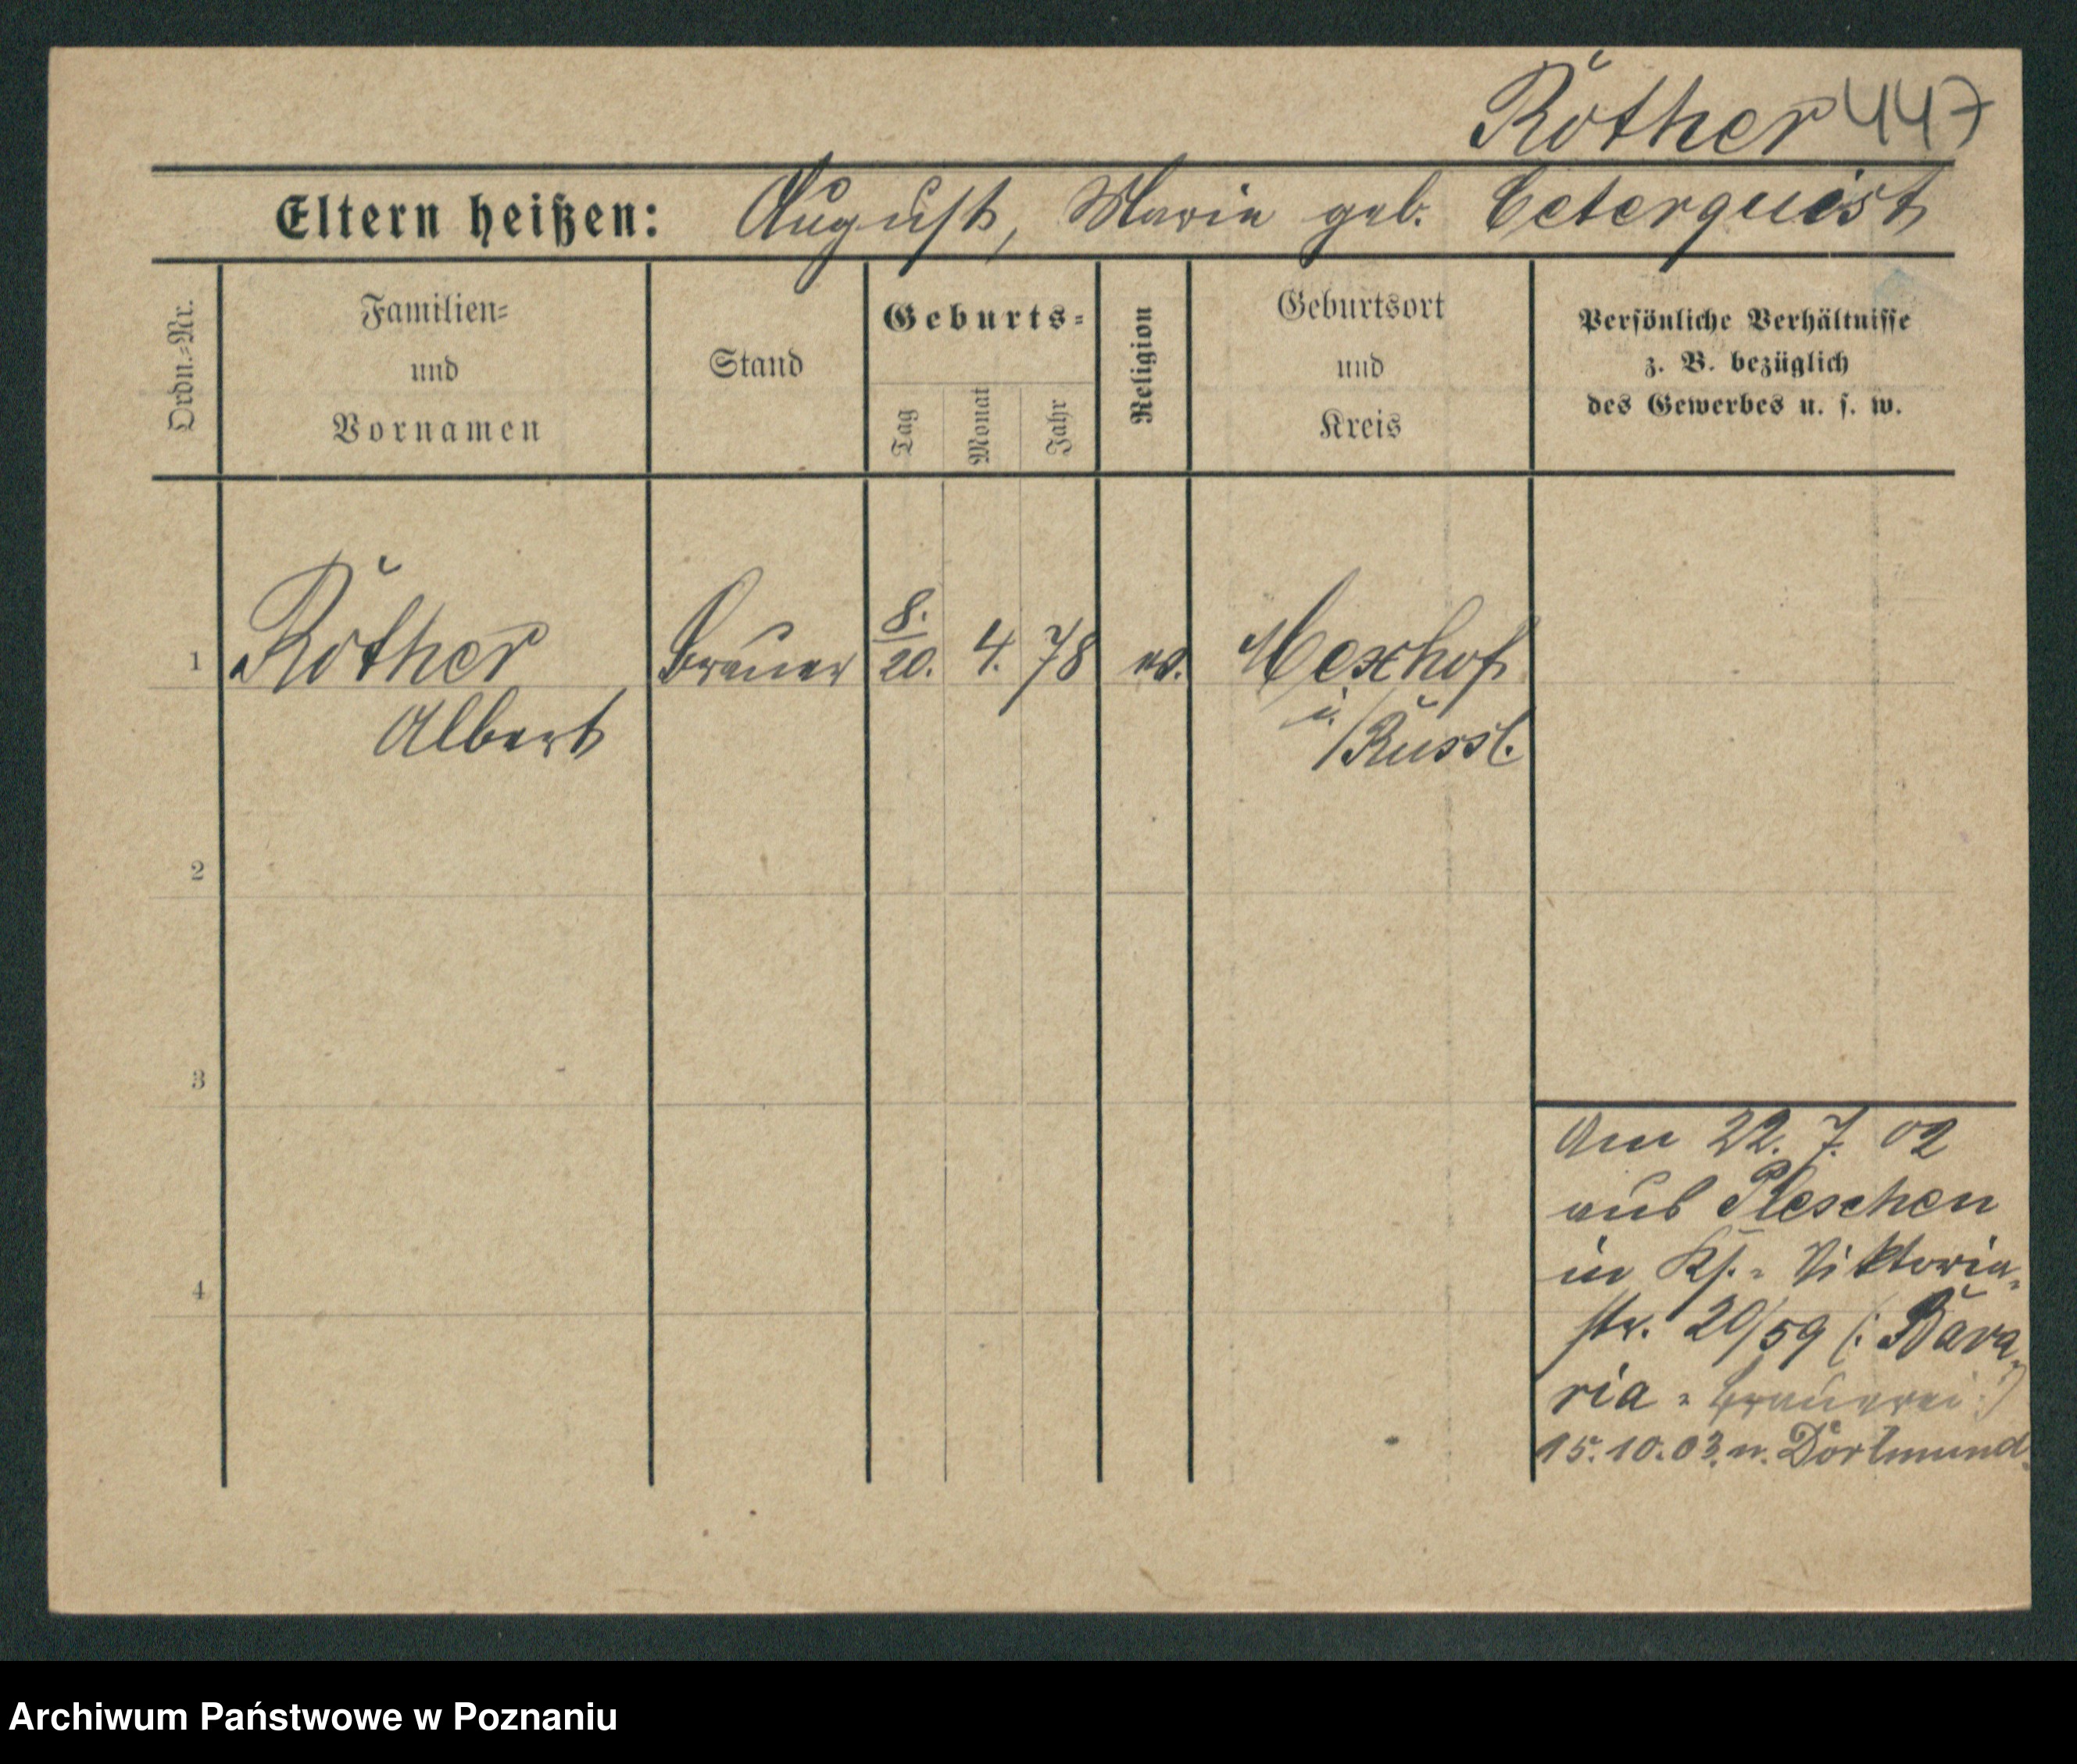 Röther 447
Eltern heißen: August, Maria geb. Ceterquist
Ordn.=Nr.
Familien=
und
Vornamen
Stand
Geburts=
Tag
Monat
Jahr
Religion
Geburtsort
und
Kreis
Persönliche Verhältnisse
z. B. bezüglich
des Gewerbes u. s. w.
1 Röther Brauer 8./20. 4. 78 ev. Mexhof
Albert i./Russl.
2
3
4
Am 22. 7. 02
aus Pleschen
in Ks.= Viktoria=
str. 20/59 (: Bava=
ria = Brauerei :)
15. 10. 03. n. Dortmund.
Archiwum Państwowe w Poznaniu